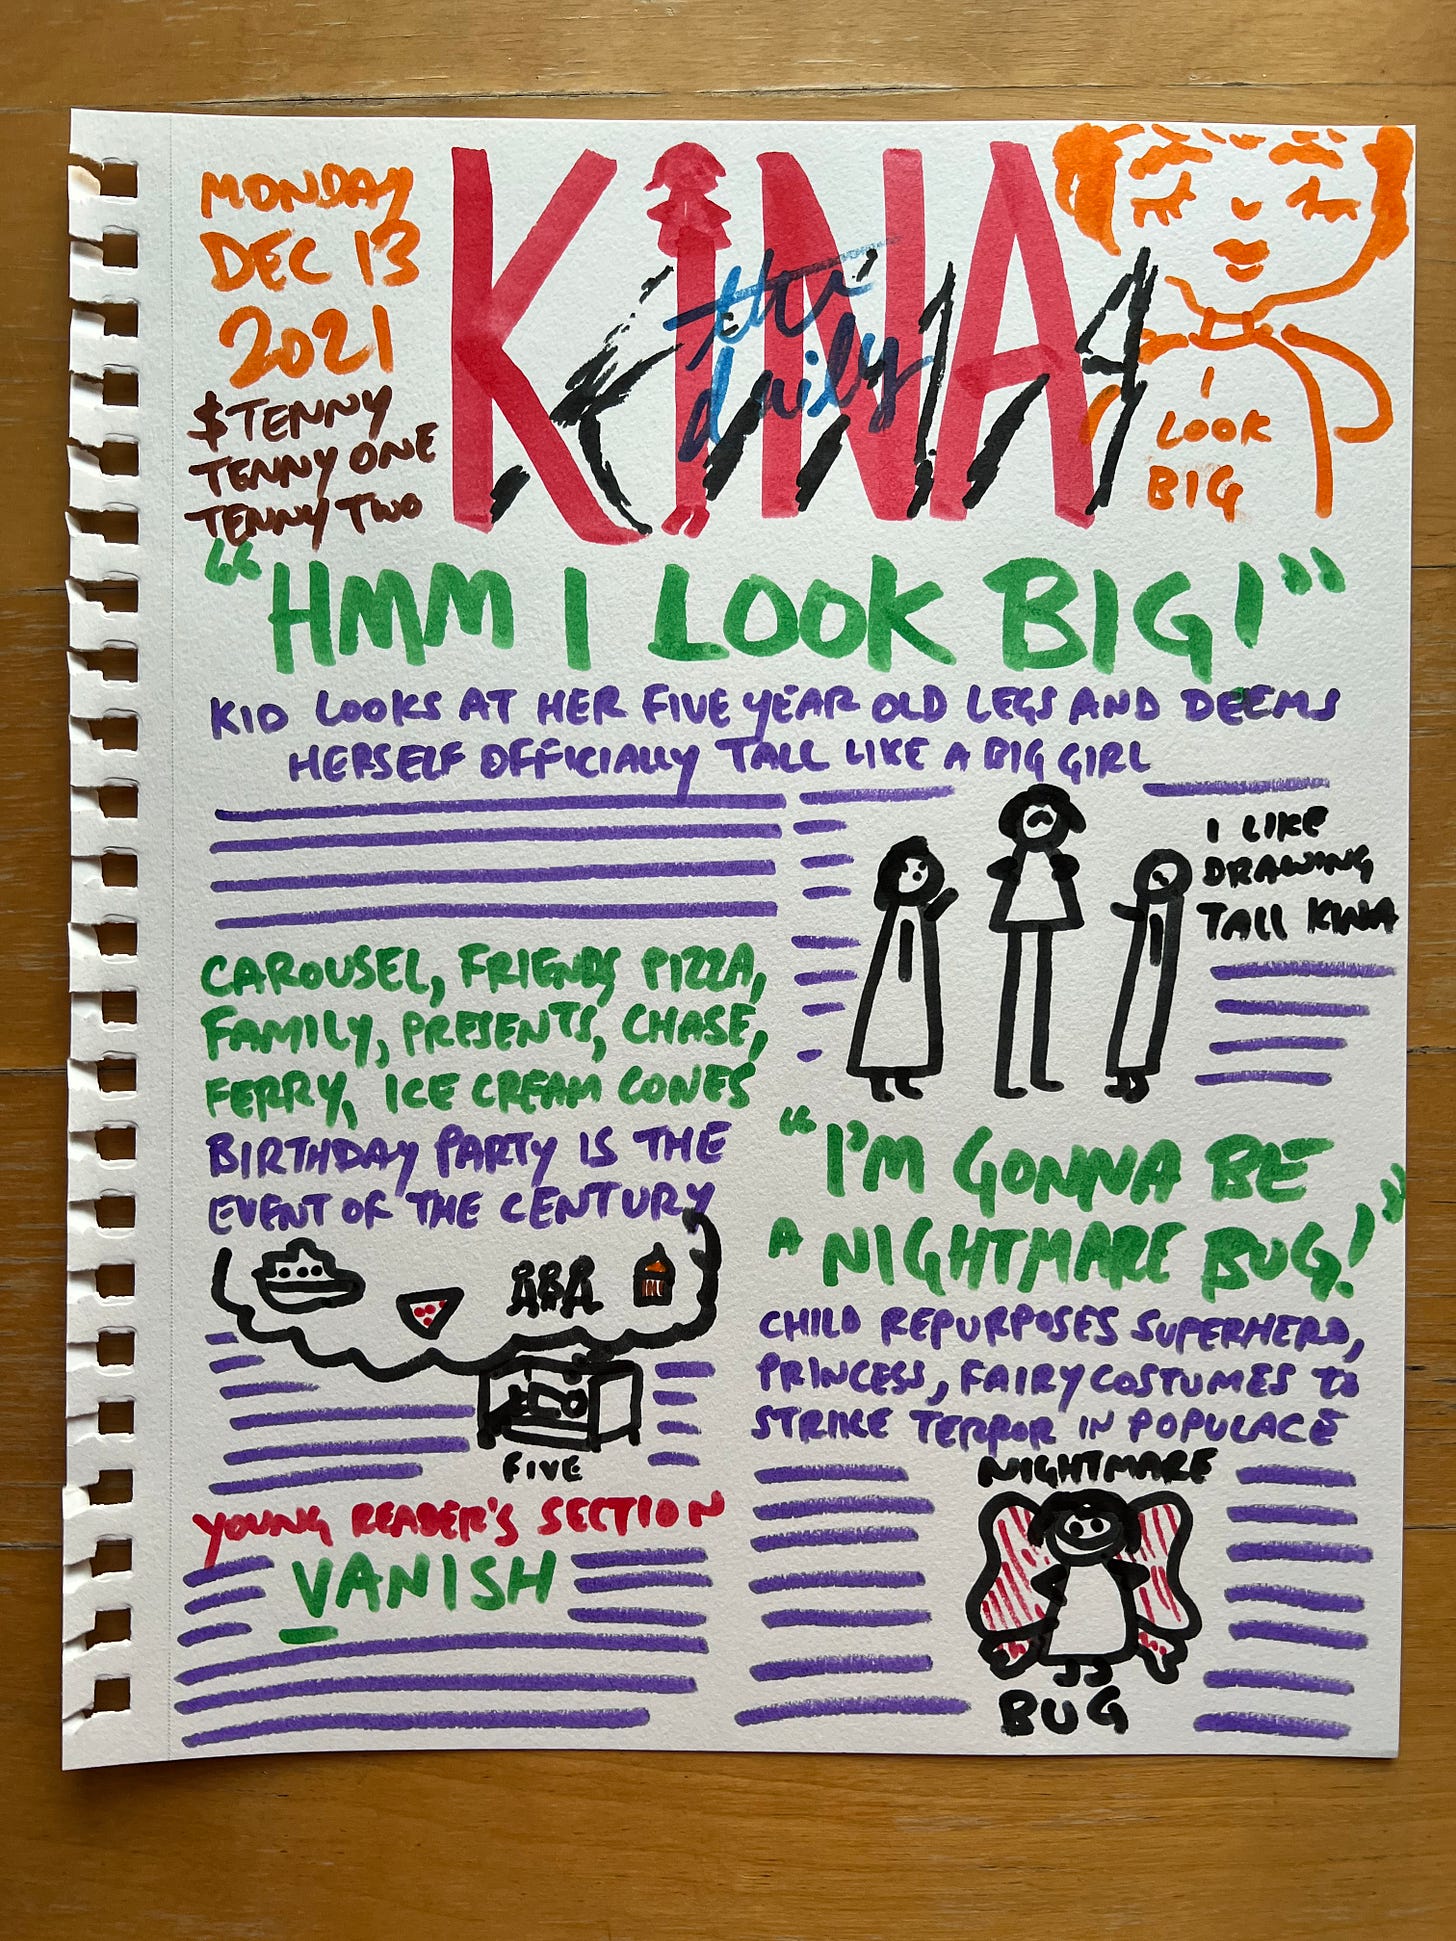 MONDAY
DEC 13
2021
$TENNY
TENNY ONE
TENNY TWO
the
daily
KINA
I
LOOK
BIG
"HMM I LOOK BIG!"
KID LOOKS AT HER FIVE YEAR OLD LEGS AND DEEMS
HERSELF OFFICIALLY TALL LIKE A BIG GIRL
I LIKE
DRAWING
TALL KINA
CAROUSEL, FRIENDS PIZZA,
FAMILY, PRESENTS, CHASE,
FERRY, ICE CREAM CONES
BIRTHDAY PARTY IS THE
EVENT OF THE CENTURY
FIVE
YOUNG READER'S SECTION
VANISH
"I'M GONNA BE
A NIGHTMARE BUG!"
CHILD REPURPOSES SUPERHERO,
PRINCESS, FAIRY COSTUMES TO
STRIKE TERROR IN POPULACE
NIGHTMARE
BUG